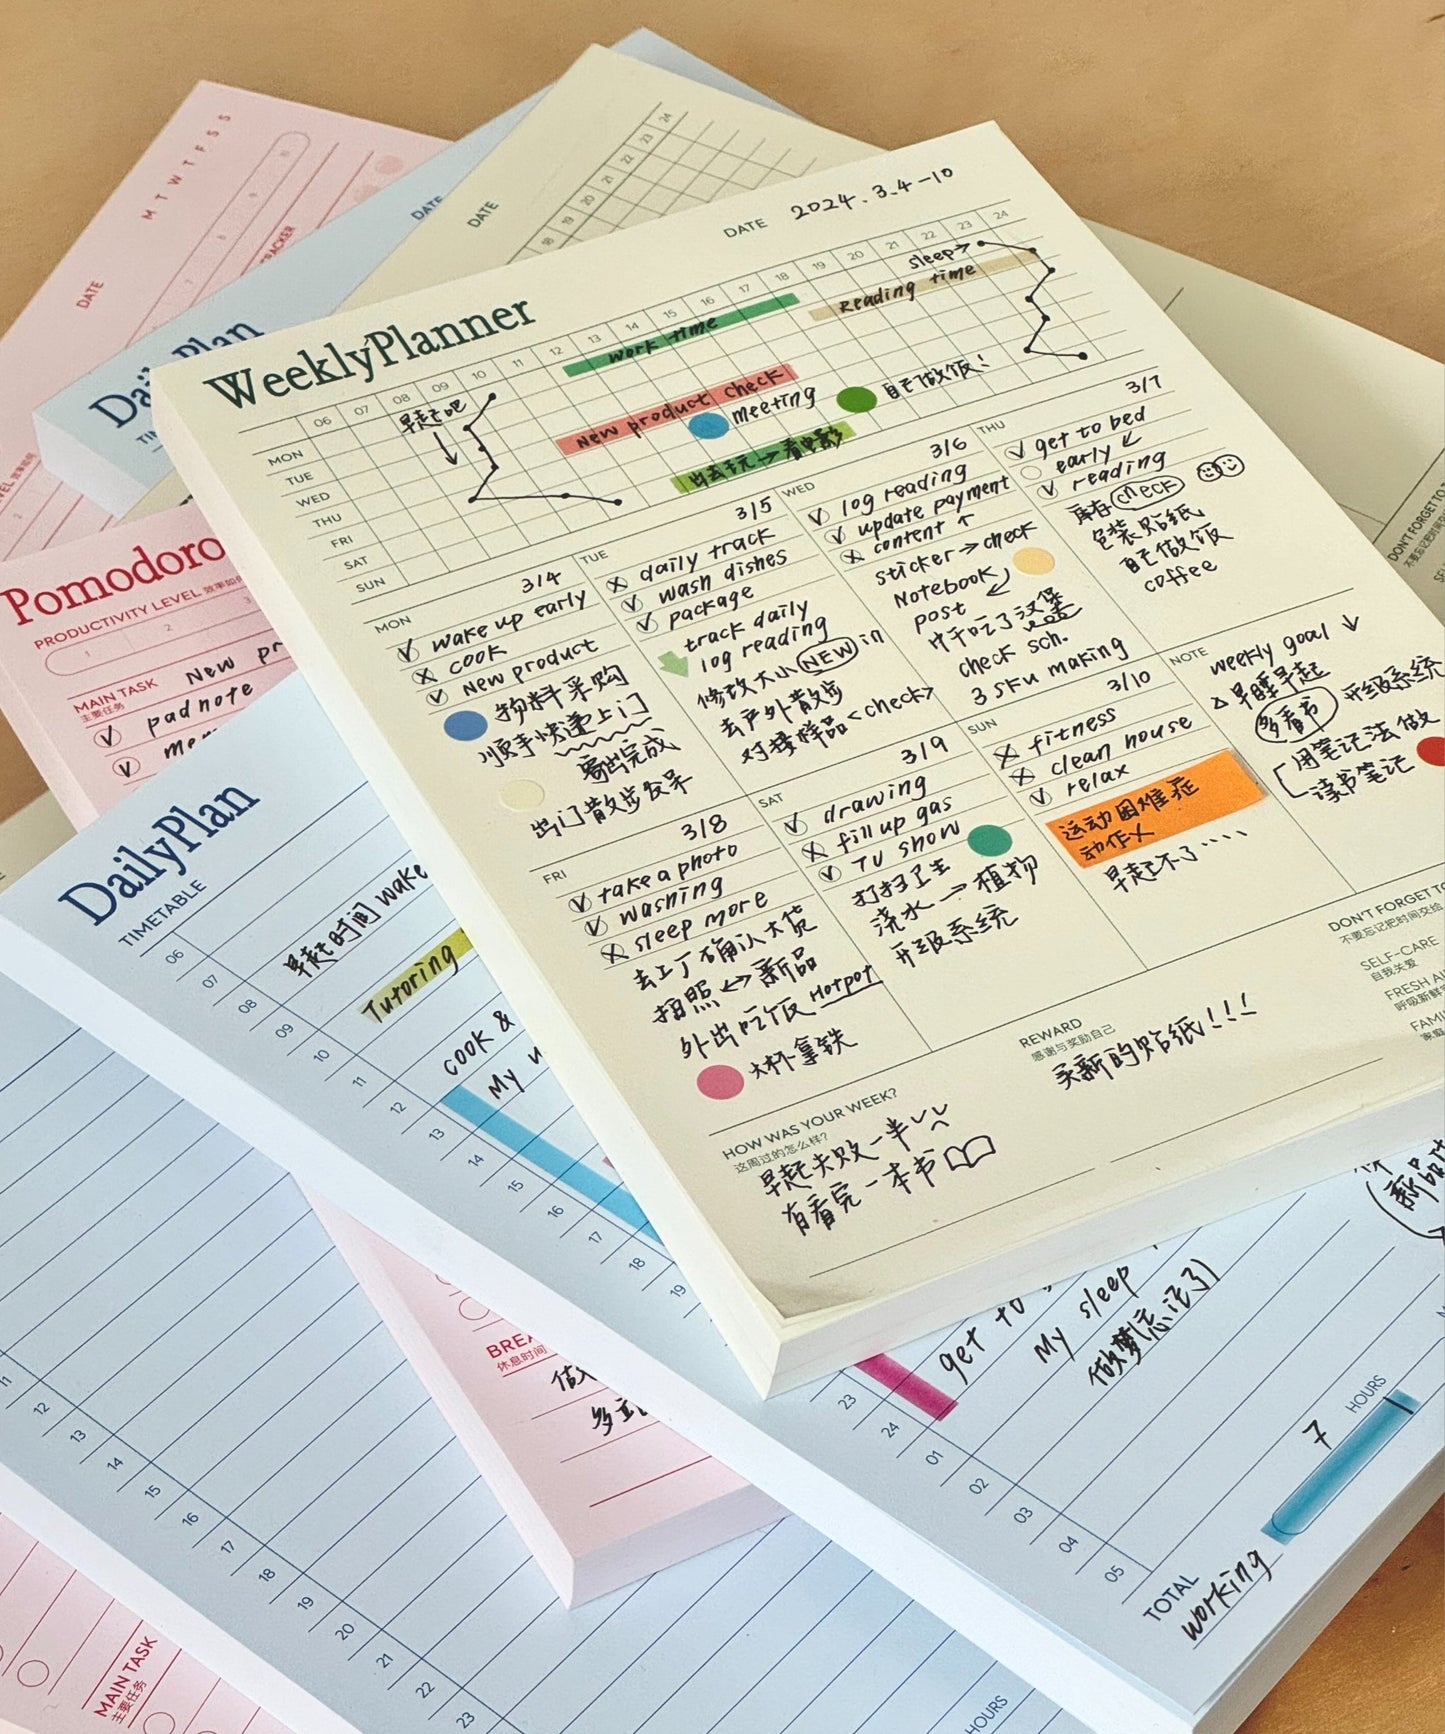 M T W T F S S
DATE
DATE
DATE
18 19 20 21 22 23 24
DailyPlan
WeeklyPlanner
DATE 2024.3.4-10
06 07 08 09 10 11 12 13 14 15 16 17 18 19 20 21 22 23 24
MON
TUE
WED
THU
FRI
SAT
SUN
早起吧
work time
sleep→
Reading time
New product check
meeting
自己做饭!
出去玩→看电影
MON 3/4
wake up early
cook
new product
物料采购
顺手快递上门
寄出完成
出门散步发呆
TUE 3/5
daily track
wash dishes
package
track daily
log reading
修改大小 NEW in
去户外散步
对接样品<check>
WED 3/6
log reading
update payment
content ↑
sticker→check
Notebook
post
中午吃了汉堡
check sch.
3 sku making
THU 3/7
get to bed
early
reading
库存check
包装贴纸
自己做饭
coffee
FRI 3/8
take a photo
washing
sleep more
去工厂确认大货
拍照↔新品
外出吃饭 Hotpot
大杯拿铁
SAT 3/9
drawing
fill up gas
TV show
打扫卫生
浇水→植物
升级系统
SUN 3/10
fitness
clean house
relax
运动困难症
动作乂
早起不了····
NOTE
weekly goal ↓
△早睡早起
多看书 升级系统
用笔记法做
读书笔记
HOW WAS YOUR WEEK?
这周过的怎么样?
早起失败一半
有看完一本书
REWARD
感谢与奖励自己
买新的贴纸!!!
DON'T FORGET TO
不要忘记把时间交给
SELF-CARE
自我关爱
FRESH AI
呼吸新鲜
FAMI
家庭
DON'T FORGET TO
不要忘记把时间交给
Pomodoro
PRODUCTIVITY LEVEL
1 2 3
MAIN TASK
主要任务
New pr
padnote
mer
DailyPlan
TIMETABLE
06
07
08
09
10
11
12
13
14
15
16
17
18
19
早起时间 wake
Tutoring
cook &
My
BREA
休息时间
23
24
01
02
03
04
05
get to
My sleep
做梦(忘记了)
新品
7 HOURS
TOTAL
working
11
12
13
14
15
16
17
18
19
20
21
22
23
HOURS
MAIN TASK
主要任务